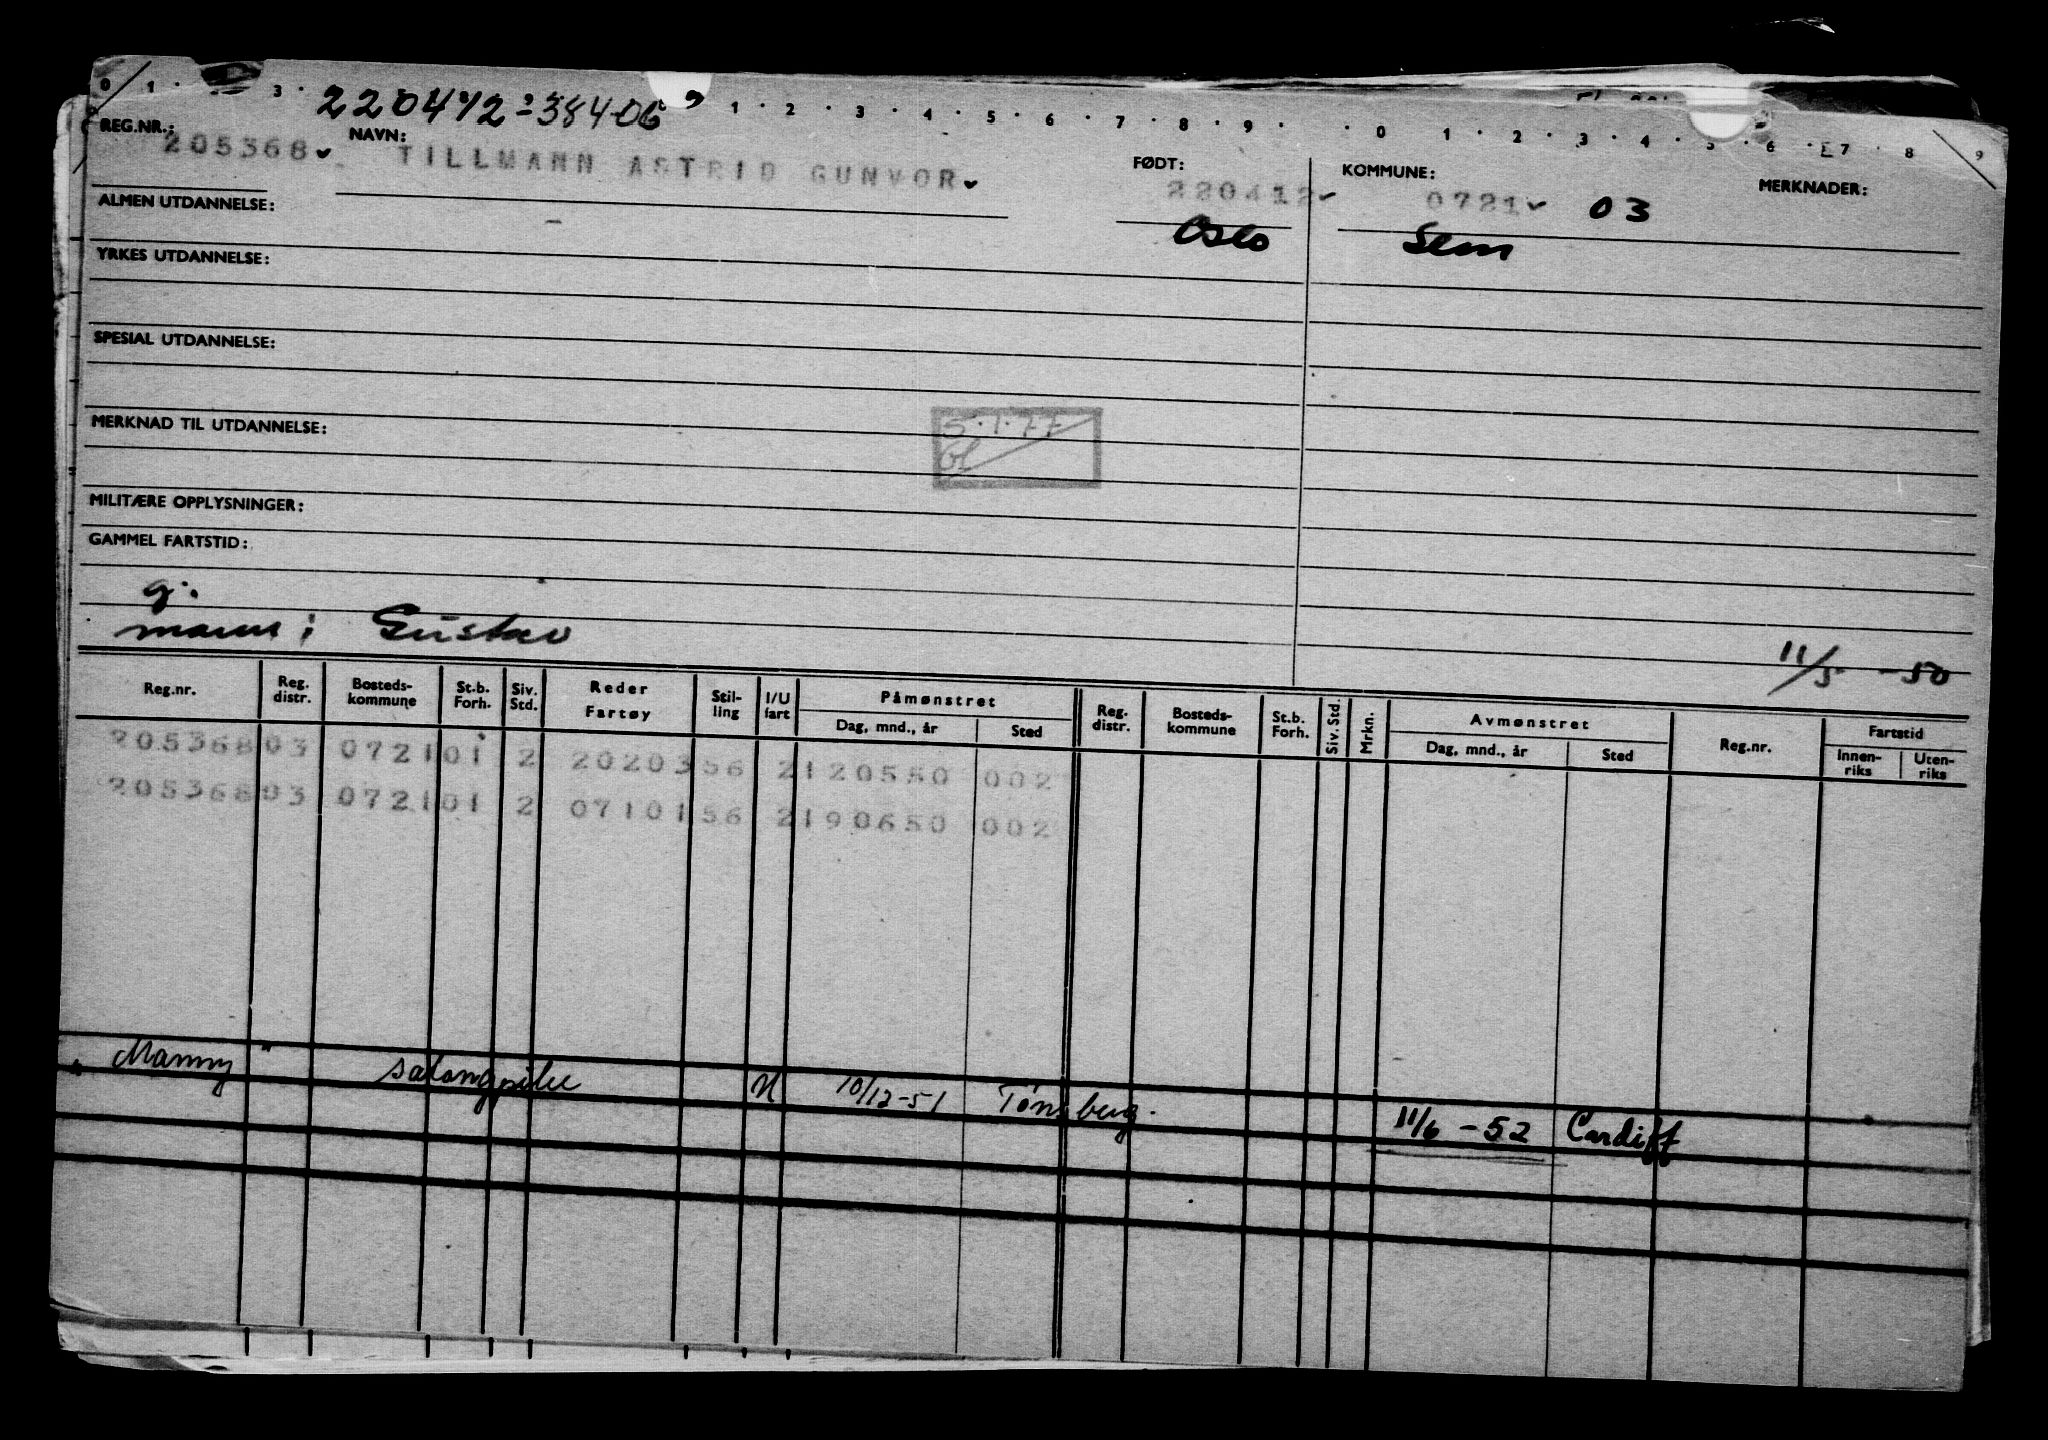 0 1 . 3 . 220412-38406 1 . 2 . 3 . 4 . 5 . 6 . 7 . 8 . 9 . . 0 1 . 2 . 3 . 4 . 5 . 6 . 7 8 9
REG.NR.: 205368 NAVN: TILLMANN ASTRID GUNVOR FØDT: 220412 KOMMUNE: 0721 03 MERKNADER:
ALMEN UTDANNELSE: - Oslo Sem
YRKES UTDANNELSE:
SPESIAL UTDANNELSE:
MERKNAD TIL UTDANNELSE: 5.1.77
MILITÆRE OPPLYSNINGER:
GAMMEL FARTSTID:
g.
mann: Gustav 11/5 - 50
Reg.nr. Reg. distr. Bosteds-kommune St.b. Forh. Siv. Std. Reder Fartøy Stil-ling I/U fart Påmønstret Dag, mnd., år Sted Reg. distr. Bosteds-kommune St.b. Forh. Siv. Std. Mrkn. Avmønstret Dag, mnd., år Sted Reg.nr. Fartstid Innen-riks Uten-riks
205368 03 0721 01 2 20203 56 2 120550 002
205368 03 0721 01 2 07101 56 2 190650 002
"Manny" salongpike U 10/12-51 Tønsberg. 11/6 - 52 Cardiff